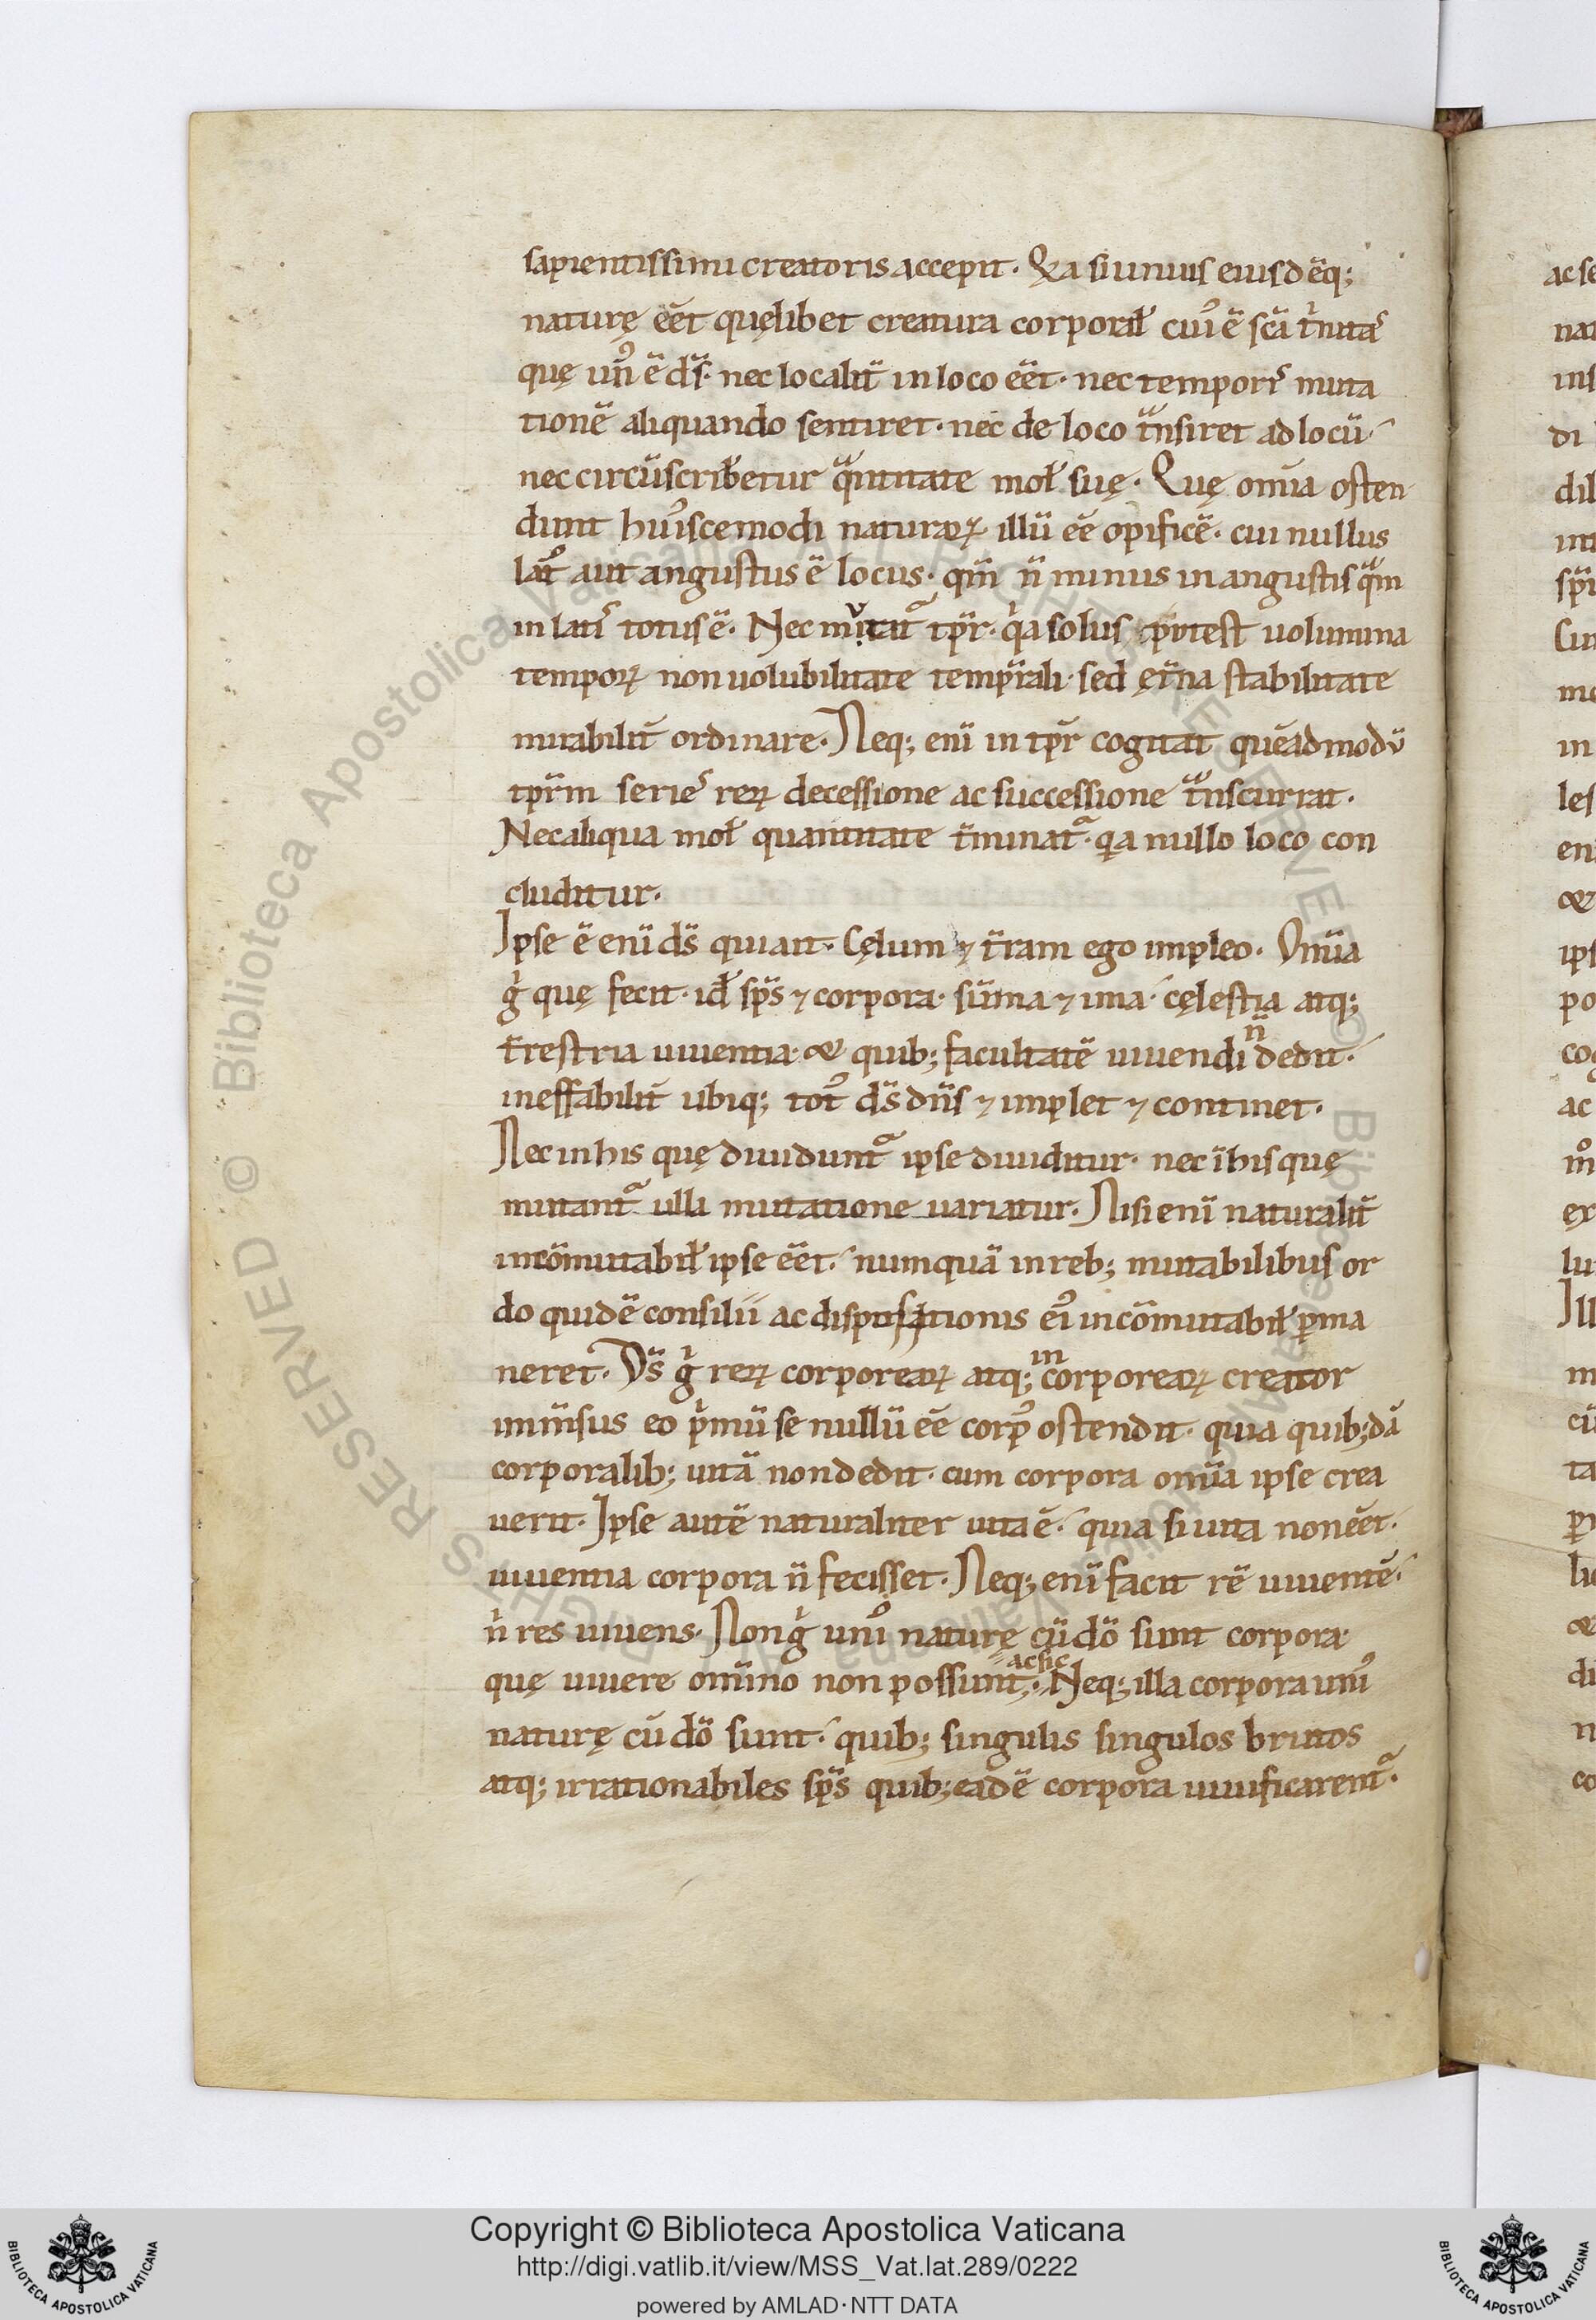 sapientissimi creatoris accepit. Q̇a si unius eiusdēq;
naturę eēt quęlibet creatura corporał cui᷒ ē scā t̊nitas
quę un᷒ ē ds̄. nec localit̄ in loco eēt. nec temporis muta
tionē aliquando sentiret. nec de loco tᷓnsiret ad locū
nec circūscriƀetur qᷓntitate moł suę. Quę om̄ia osten
dunt hui᷒scemodi naturaꝝ illū eē opificē. cui nullus
lat᷒ aut angustus ē locus. qm̄ n̄ minus in angustis qᷓm
in latis totus ē. Nec mutat᷑ tp̄r. qͥa solus potest uolumina
tempoꝝ non uolubilitate temp̄rali. sed ęt̄na stabilitate
mutabilit̄ ordinare. Neq; eni in tp̄r cogitat quēadmodū
tp̄rm series reꝝ decessione ac successione tᷓnscurrat.
Nec aliqua moł quantitate t̄minat᷑. qa nullo loco con
cluditur.
Ipse ē eni ds̄ qui ait. Cęlum ⁊ t̄ram ego impleo. Om̄ia
gͥ quę fecit. id ł sp̄s ⁊ corpora. sūma ⁊ ima. cęlestia atq;
t̄restria uiuentia. & quib; facultatē uiuendi n̄ dedit.
ineffabilit̄ ubiq; tot᷒ ds̄ dn̄s ⁊ implet ⁊ continet.
Nec in his quę diuidunt᷑ ipse diuiditur. nec ī his quę
mutant᷑ ulla mutatione uariatur. Nisi eni naturalit̄
incōmutabił ipse eēt. numquā in reb; mutabilibus or
do quidē consilii ac dispositionis ei᷒ incōmutabił ꝑma
neret. Ds̄ gͥ reꝝ corporeaꝝ atq; incorporeaꝝ creator
imm̄sus eo pͥmū se nullū eē corp᷒ ostendit. quia quib;dā
corporalib; uitā non dedit. cum corpora om̄ia ipse crea
uerit. Ipse autē naturaliter uita ē. quia si uita non eēt.
uiuentia corpora n̄ fecisset. Neq; eni facit rē uiuentē.
nͥ res uiuens. Non gͥ uni᷒ naturę cū dō sunt corpora
quę uiuere om̄ino non possunt. ac sic Neq; illa corpora uni᷒
naturę cū dō sunt. quib; singulis singulos brutos
atq; irrationabiles sp̄s quib; eadē corpora uiuificarent᷑.
ac se
nat
ins
di
dil
int
sp̄i
Cui
me
in
les
eni
&
ips
po
cog
ac
m̊
ex
lu
Ill
in
cū
ta
li
&
di
n
co
Copyright © Biblioteca Apostolica Vaticana
http://digi.vatlib.it/view/MSS_Vat.lat.289/0222
powered by AMLAD·NTT DATA
BIBLIOTECA APOSTOLICA VATICANA
BIBLIOTECA APOSTOLICA VATICANA